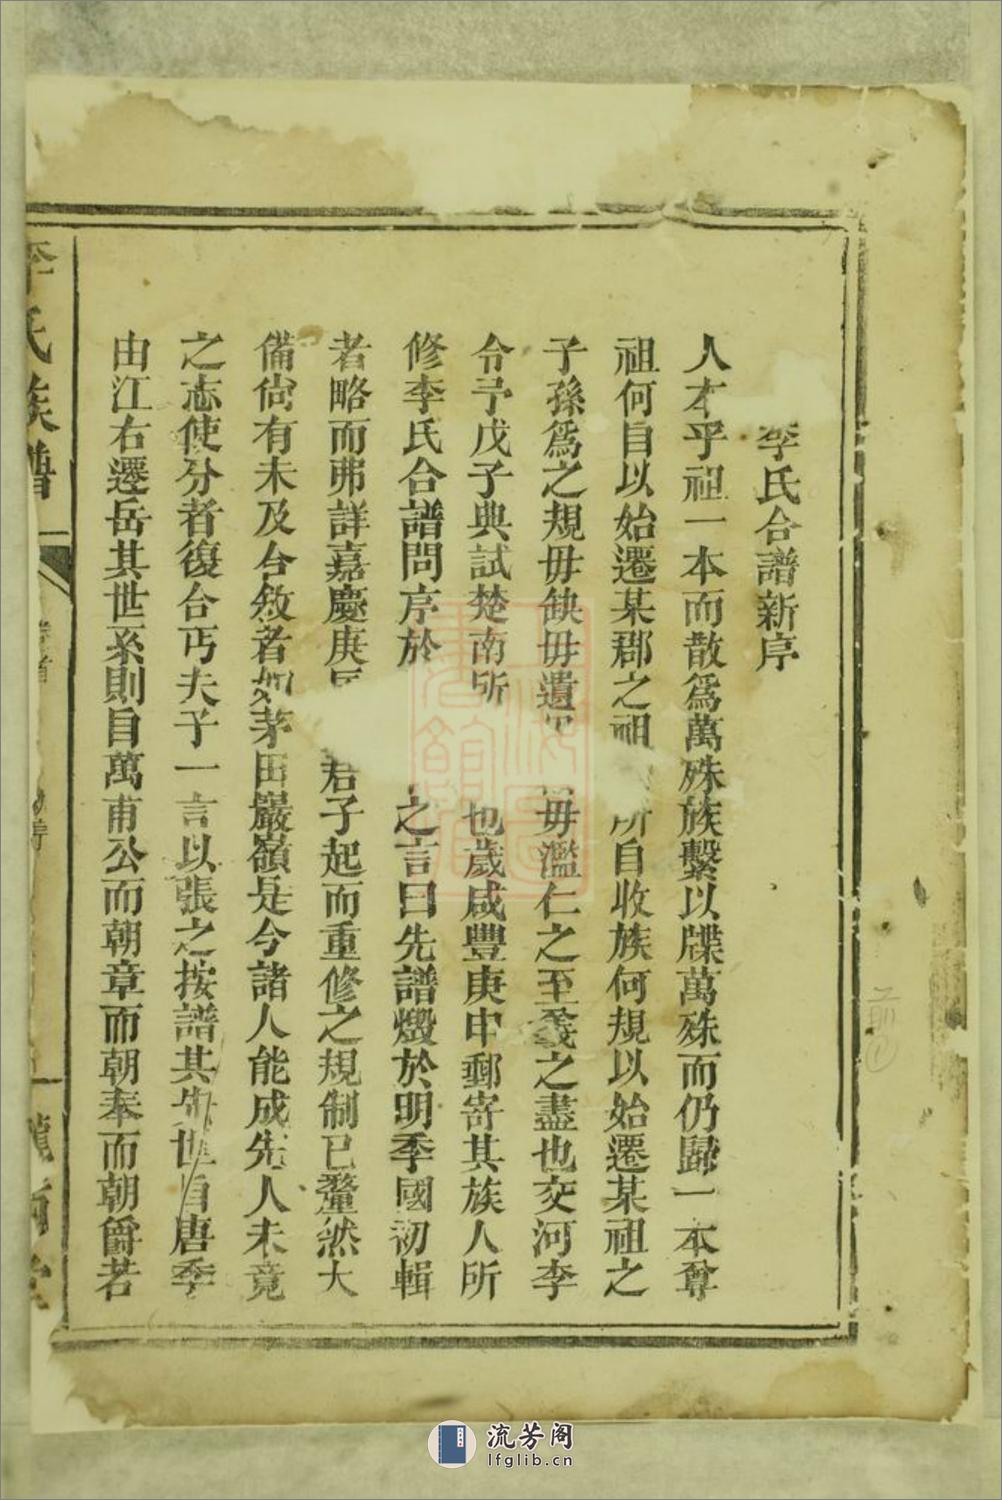 李氏合譜新序
人本乎祖一本而散爲萬殊族繫以牒萬殊而仍歸一本尊
祖何自以始遷某郡之祖所自收族何規以始遷某祖之
子孫爲之規毋缺毋遺毋濫仁之至義之盡也交河李
令予戊子典試楚南所也歲咸豐庚申郵寄其族人所
修李氏合譜問序於之言曰先譜燬於明季國初輯
者略而弗詳嘉慶庚君子起而重修之規制已釐然大
備尙有未及合敘者如茅田巖嶺是今諸人能成先人未竟
之志使分者復合丐夫子一言以張之按譜其先世自唐季
由江右遷岳其世系則自萬甫公而朝章而朝奉而朝爵若
李氏族譜
流芳阁
lfglib.cn